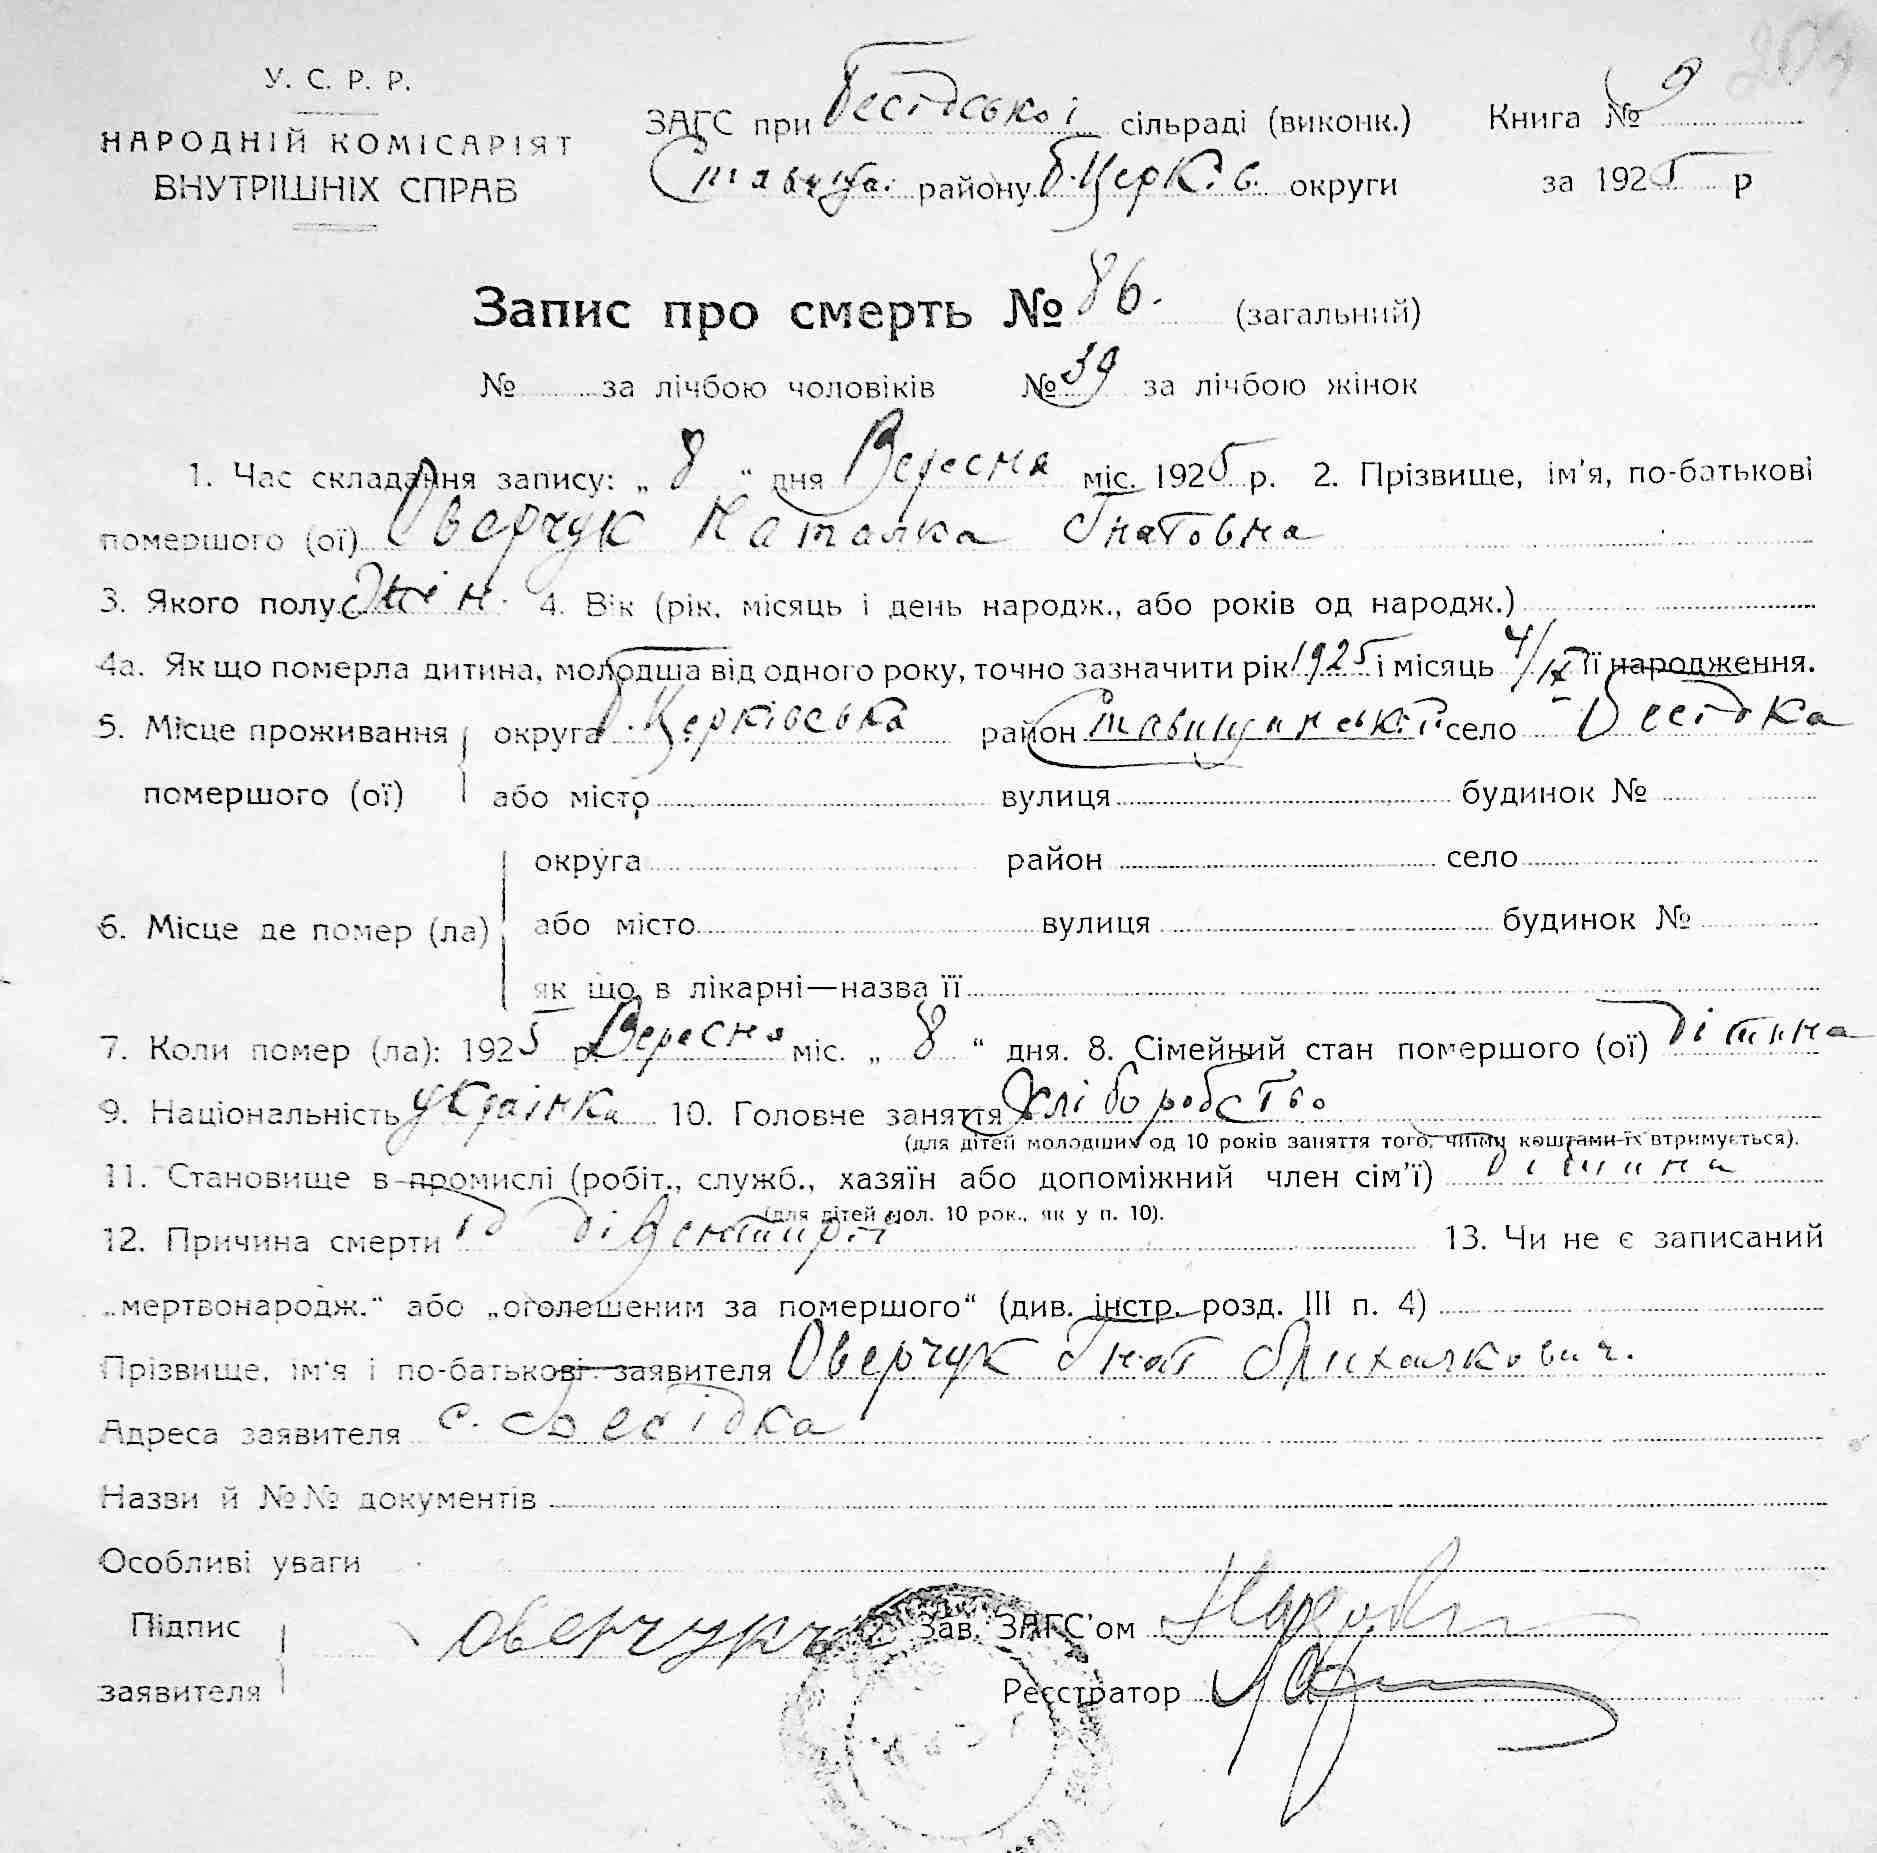 У. С. Р. Р.
НАРОДНІЙ КОМІСАРІЯТ
ВНУТРІШНІХ СПРАВ
ЗАГС при Бесідської сільраді (виконк.)
Ставищ. району Б.Церків. округи
Книга №
за 1925 р
Запис про смерть № 86. (загальний)
№ за лічбою чоловіків № 39 за лічбою жінок
1. Час складання запису: „ 8 “ дня Вересня міс. 1925 р. 2. Прізвище, ім'я, по-батькові
помершого (ої) Оверчук Наталка Гнатовна
3. Якого полу Жін. 4. Вік (рік, місяць і день народж., або років од народж.)
4а. Як що померла дитина, молодша від одного року, точно зазначити рік 1925 і місяць 4/IX її народження.
5. Місце проживання округа Б.Церківська район Ставищанський село Бесідка
помершого (ої) або місто вулиця будинок №
округа район село
6. Місце де помер (ла) або місто вулиця будинок №
як що в лікарні—назва її
7. Коли помер (ла): 1925 р. Вересня міс. „ 8 “ дня. 8. Сімейний стан помершого (ої) дітина
9. Національність українка 10. Головне заняття Хліборобство
(для дітей молодших од 10 років заняття того, чиїми коштами їх втримується).
11. Становище в промислі (робіт., служб., хазяїн або допоміжний член сім'ї) дітина
(для дітей мол. 10 рок., як у п. 10).
12. Причина смерти 13. Чи не є записаний
„мертвонародж.“ або „оголешеним за помершого“ (див. інстр. розд. III п. 4)
Прізвище, ім'я і по-батькові заявителя Оверчук Гнат Михалкович.
Адреса заявителя с. Бесідка
Назви й №№ документів
Особливі уваги
Підпис заявителя Зав. ЗАГС'ом
Реєстратор